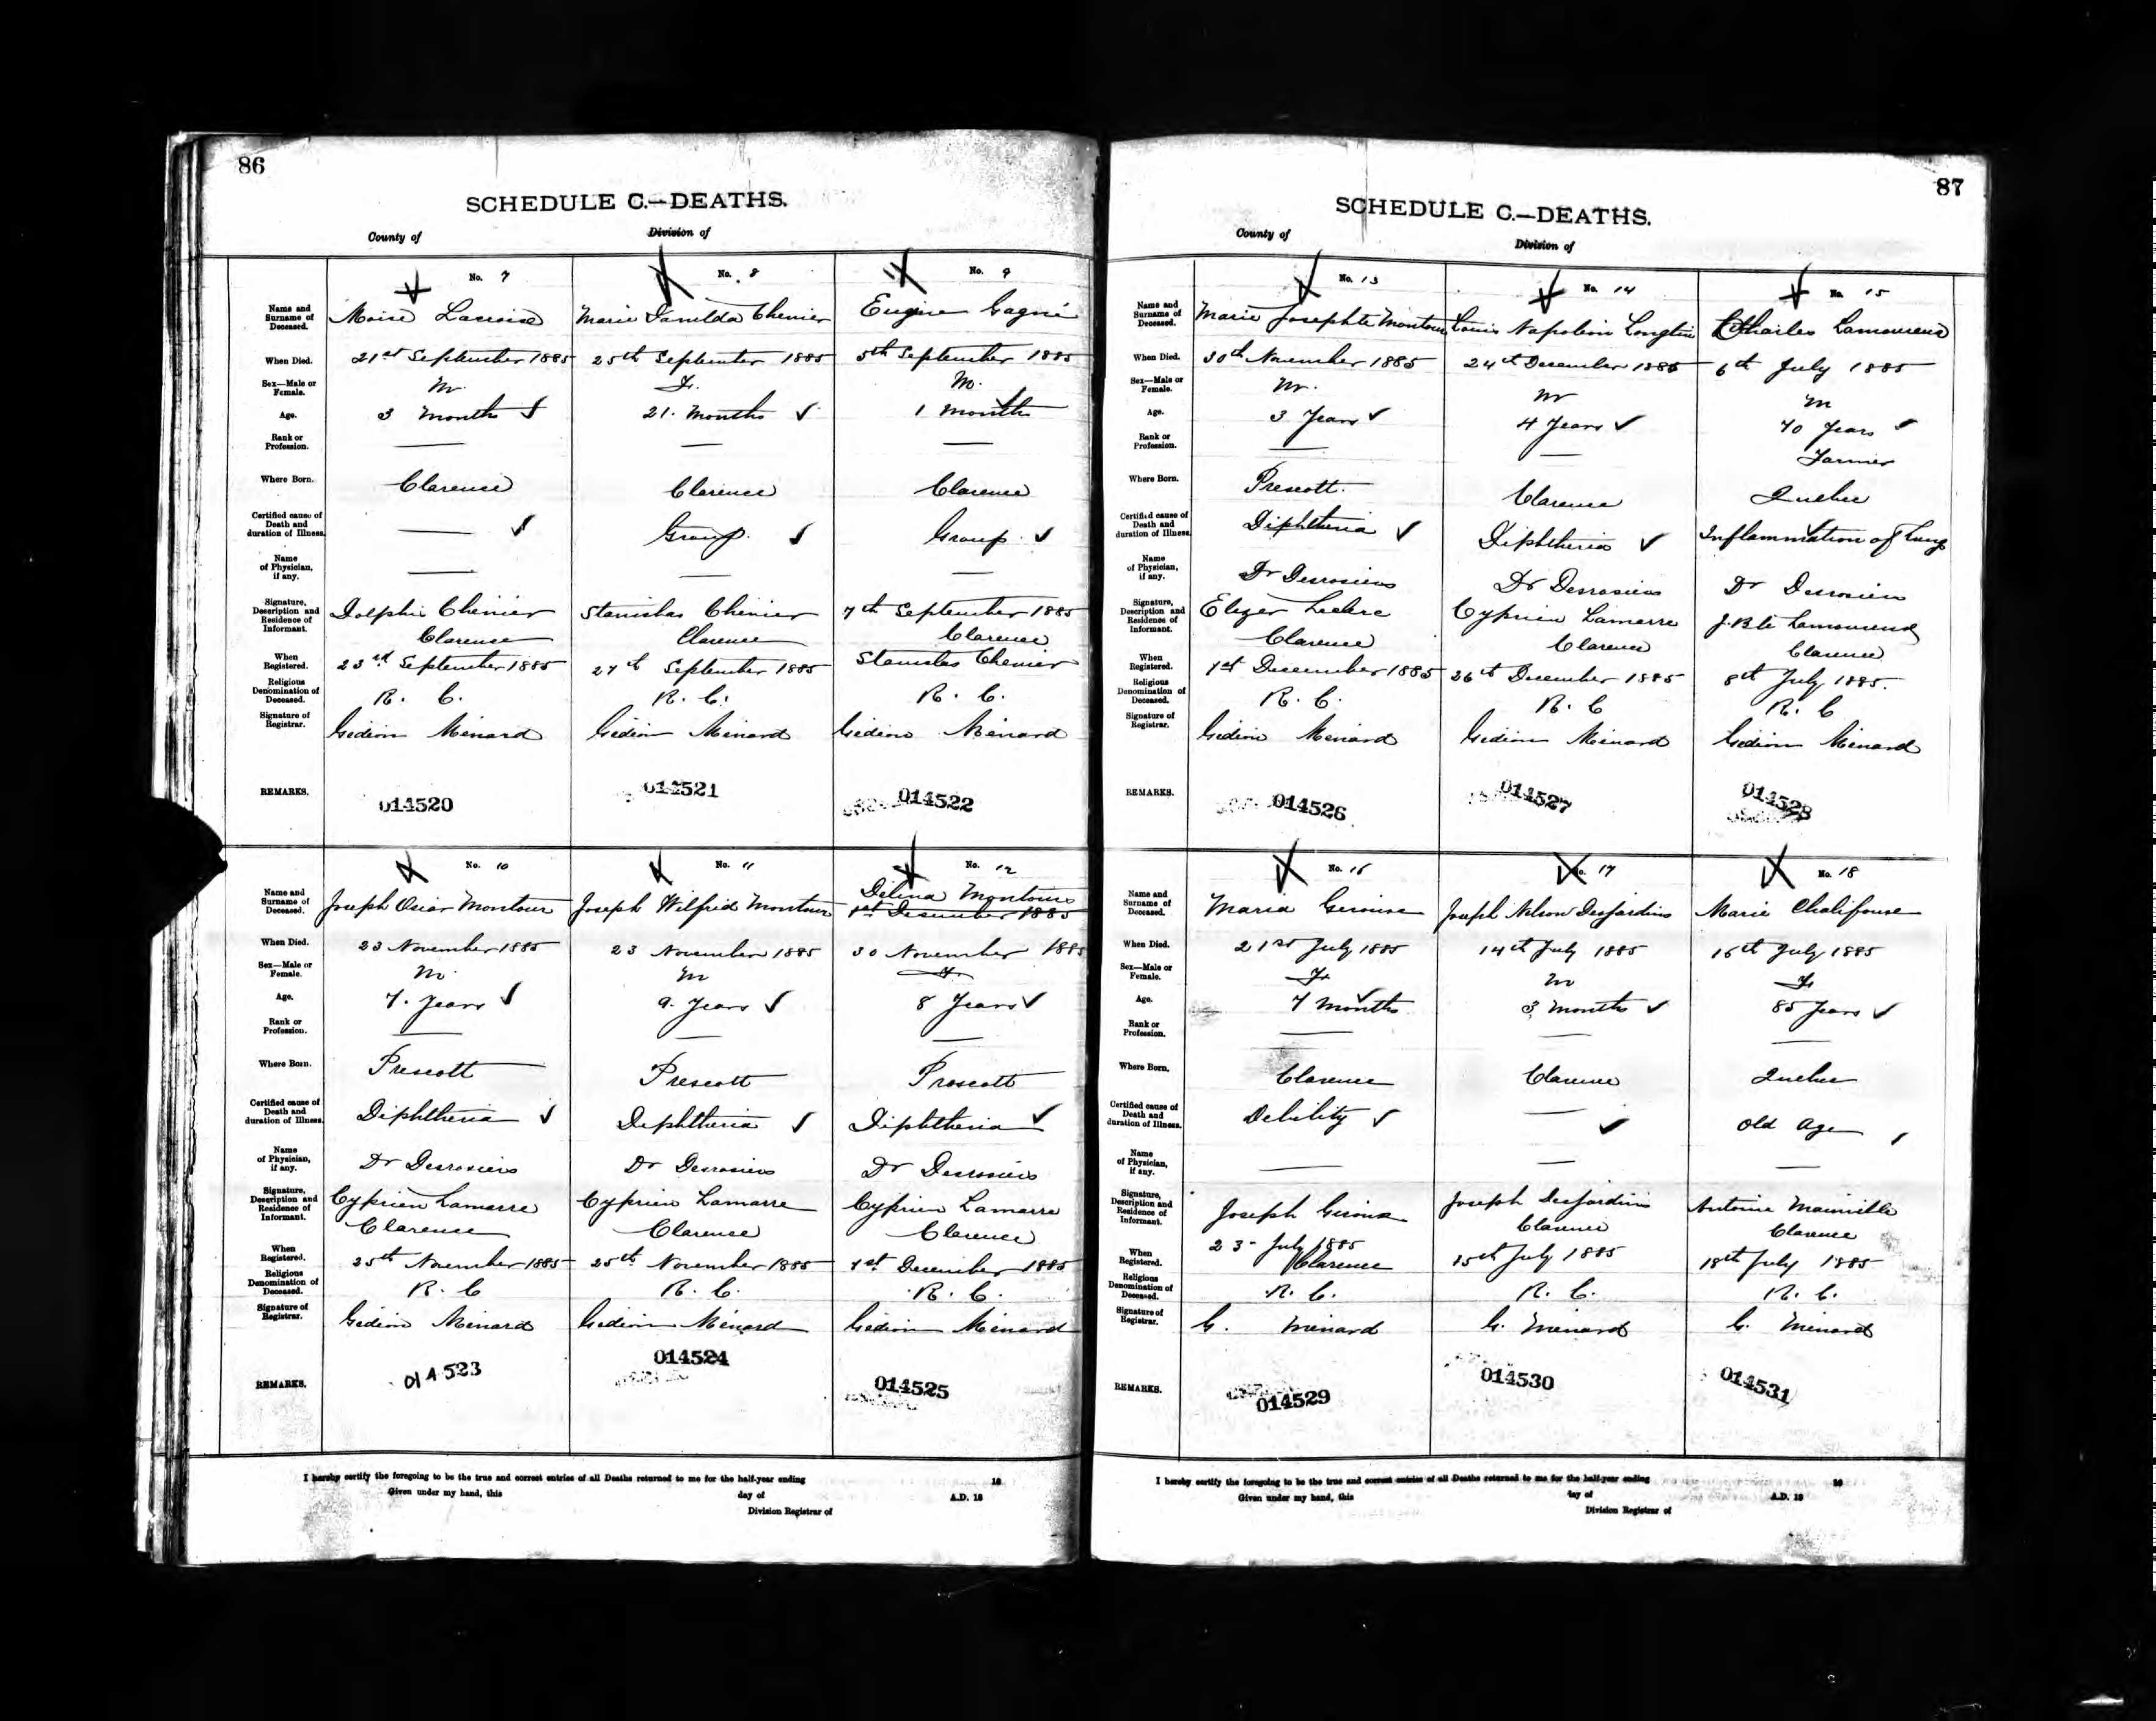 86
SCHEDULE C.—DEATHS.
County of
Division of
No. 7
No. 8
No. 9
Name and Surname of Deceased.
Moise
Marie Chenier
Eugène Gagné
When Died.
21st September 1885
25th September 1885
5th September 1885
Sex—Male or Female.
M.
F.
M.
Age.
3 Months
21. Months
1 Months
Rank or Profession.
Where Born.
Clarence
Clarence
Clarence
Certified cause of Death and duration of Illness.
Group.
Group.
Name of Physician, if any.
Signature, Description and Residence of Informant.
Dolphis Chénier
Clarence
Stanislas Chénier
Clarence
7th September 1885
Clarence
When Registered.
23rd September 1885
27th September 1885
Stanislas Chenier
Religious Denomination of Deceased.
R. C.
R. C.
R. C.
Signature of Registrar.
Gédéon Ménard
Gédéon Ménard
Gédéon Ménard
REMARKS.
014520
014521
014522
No. 10
No. 11
No. 12
Name and Surname of Deceased.
Joseph Oscar Montour
Joseph Wilfrid Montour
Délina Montour
1st December 1885
When Died.
23 November 1885
23 November 1885
30 November 1885
Sex—Male or Female.
M.
M
F.
Age.
7. Years
9. Years
8 Years
Rank or Profession.
Where Born.
Prescott
Prescott
Prescott
Certified cause of Death and duration of Illness.
Diphtheria
Diphtheria
Diphtheria
Name of Physician, if any.
Dr Desrosiers
Dr Desrosiers
Dr Desrosiers
Signature, Description and Residence of Informant.
Cyprien Lamarre
Clarence
Cyprien Lamarre
Clarence
Cyprien Lamarre
Clarence
When Registered.
25th November 1885
25th November 1885
1st December 1885
Religious Denomination of Deceased.
R. C
R. C.
R. C.
Signature of Registrar.
Gédéon Ménard
Gédéon Ménard
Gédéon Ménard
REMARKS.
014523
014524
014525
I hereby certify the foregoing to be the true and correct entries of all Deaths returned to me for the half-year ending 18
Given under my hand, this day of A.D. 18
Division Registrar of
87
SCHEDULE C.—DEATHS.
County of
Division of
No. 13
No. 14
No. 15
Name and Surname of Deceased.
Marie Josephte Montour
Louis Napoléon Longtin
Charles Lamoureux
When Died.
30th November 1885
24th December 1885
6th July 1885
Sex—Male or Female.
M.
M
M
Age.
3 Years
4 Years
70 Years
Rank or Profession.
Farmer
Where Born.
Prescott.
Clarence
Quebec
Certified cause of Death and duration of Illness.
Diphtheria
Diphtheria
Inflammation of Lungs
Name of Physician, if any.
Dr Desrosiers
Dr Desrosiers
Dr Desrosiers
Signature, Description and Residence of Informant.
Elezer Leclerc
Clarence
Cyprien Lamarre
Clarence
J. Bte Lamoureux
Clarence
When Registered.
1st December 1885
26th December 1885
8th July 1885.
Religious Denomination of Deceased.
R. C.
R. C
R. C
Signature of Registrar.
Gédéon Ménard
Gédéon Ménard
Gédéon Ménard
REMARKS.
014526
014527
014528
No. 16
No. 17
No. 18
Name and Surname of Deceased.
Maria
Joseph Nelson Desjardins
Marie Chalifoux
When Died.
21st July 1885
14th July 1885
16th July 1885
Sex—Male or Female.
F.
M
F.
Age.
7 Months
3 Months
85 Years
Rank or Profession.
Where Born.
Clarence
Clarence
Quebec
Certified cause of Death and duration of Illness.
Debility
Old Age
Name of Physician, if any.
Signature, Description and Residence of Informant.
Joseph
Joseph Desjardins
Clarence
Antoine Mainville
Clarence
When Registered.
23 - July 1885
Clarence
15th July 1885
18th July 1885
Religious Denomination of Deceased.
R. C.
R. C.
R. C.
Signature of Registrar.
G. Ménard
G. Ménard
G. Ménard
REMARKS.
014529
014530
014531
I hereby certify the foregoing to be the true and correct entries of all Deaths returned to me for the half-year ending 18
Given under my hand, this day of A.D. 18
Division Registrar of